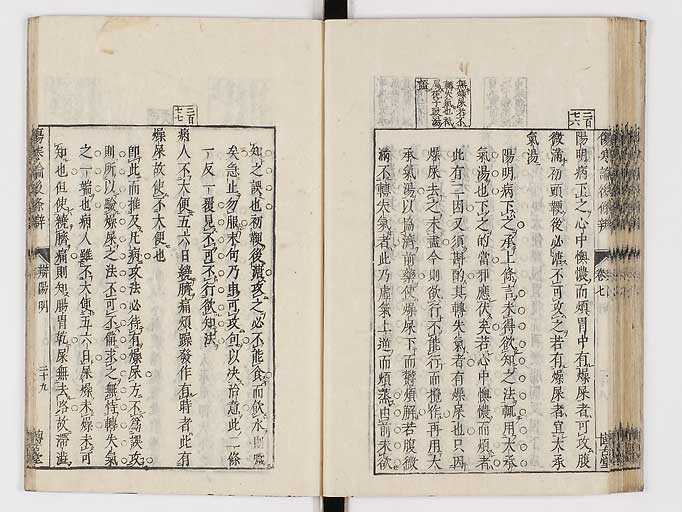 傷寒論後條辨
卷七
博古堂
二百七十六
陽明病下之心中懊憹而煩胃中有燥屎者可攻腹
微滿初頭鞕後必溏不可攻之若有燥屎者宜大承
氣湯
陽明病下之承上條言未得欲知之法輒用大承
氣湯也下之的當邪應伏矣若心中懊憹而煩者
此有二因又須斟酌其轉失氣者有燥屎也只因
燥屎去之未盡今則欲行不能行而攪作再用大
承氣湯以協濟前藥使燥屎下而鬱煩解若腹微
滿不轉失氣者此乃虛氣上逆而煩蒸由前未欲
知之誤也初鞕後溏攻之必不能食而飲水則噦
矣急止勿服末句乃申可攻句以決治意此二條
一反一覆見不可不行欲知法
二百七十七
病人不大便五六日繞臍痛煩躁發作有時者此有
燥屎故使不大便也
即此而推及凡病攻法必待有燥屎方不為誤攻
則所以驗燥屎之法不可不備求之無恃轉失氣
之一端也病人雖不大便五六日屎燥未燥未可
知也但使繞臍痛則知腸胃乾屎無去路故滯澁
傷寒論後條辨
辨陽明
二十九
博古堂